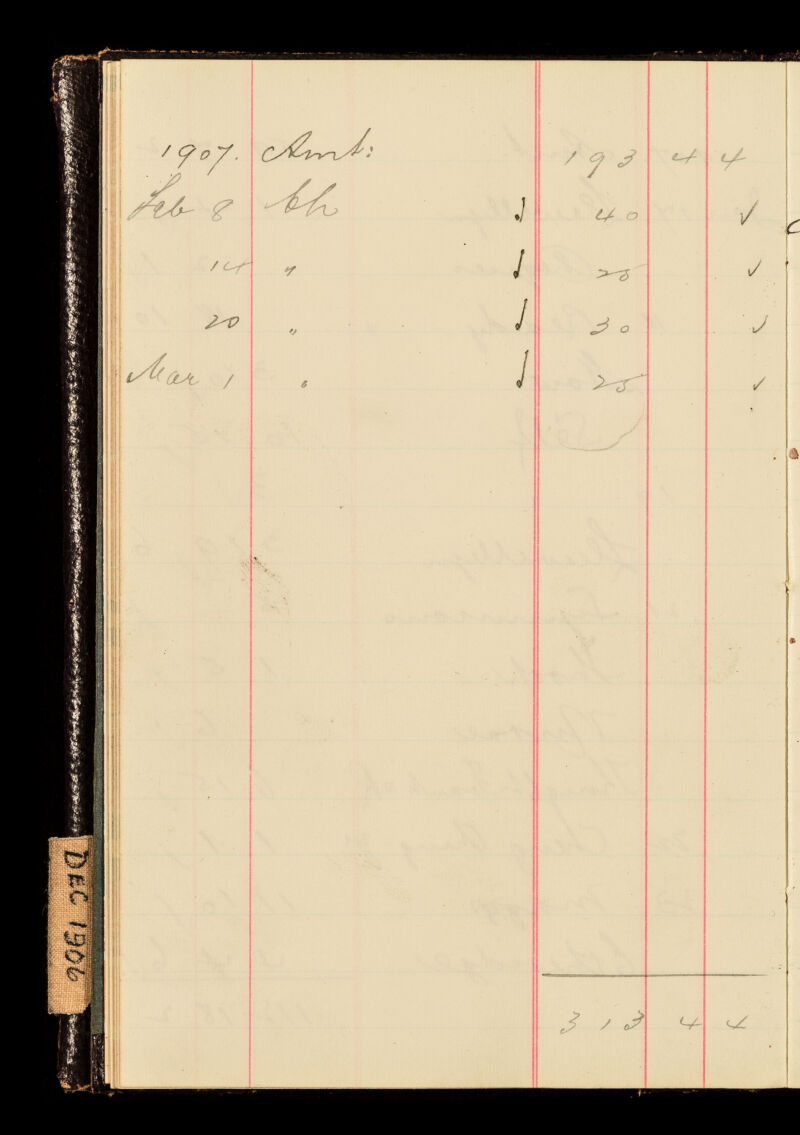 1907. Amt: 193 4 4
Feb 8 Ch √ 40 √
14 " √ 25 √
20 " √ 30 √
Mar 1 " √ 25 √
313 4 4
DEC 1906